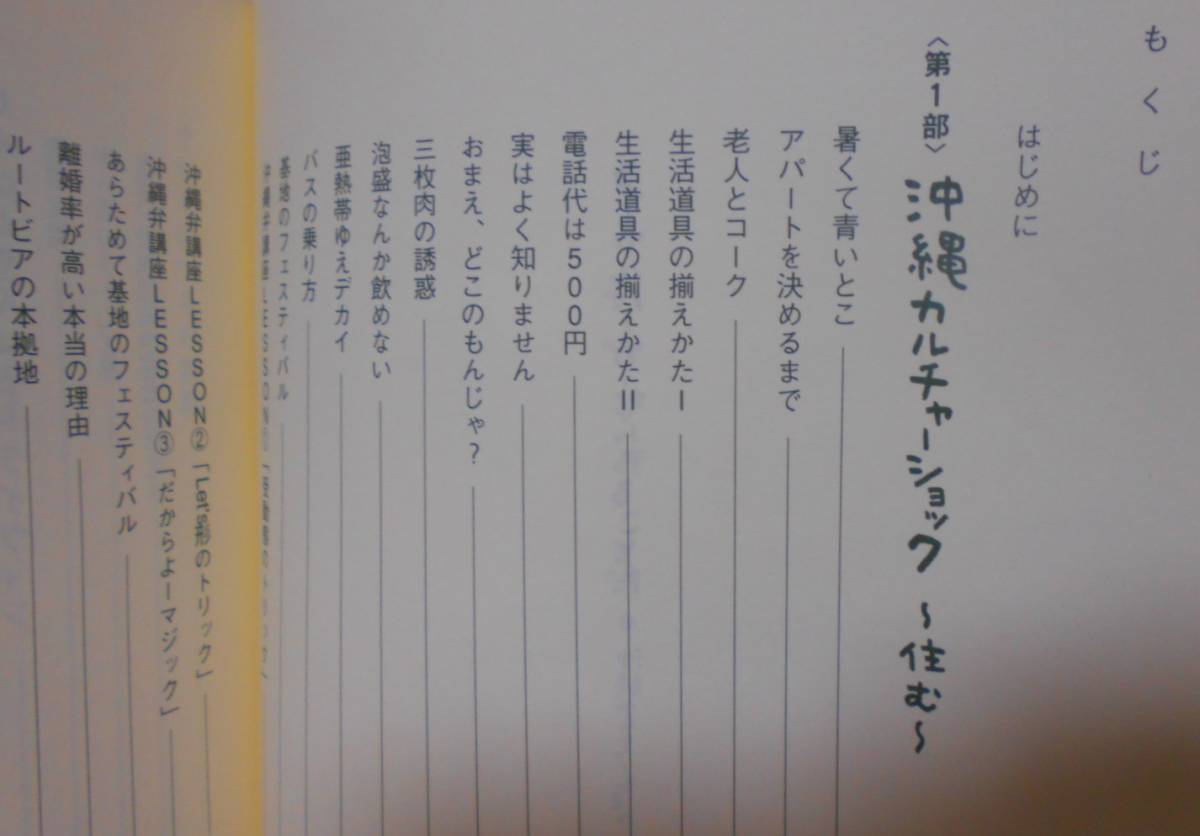 もくじ
はじめに
〈第1部〉 沖縄カルチャーショック 〜住む〜
暑くて青いとこ
アパートを決めるまで
老人とコーク
生活道具の揃えかたI
生活道具の揃えかたII
電話代は500円
実はよく知りません
おまえ、どこのもんじゃ?
三枚肉の誘惑
泡盛なんか飲めない
亜熱帯ゆえデカイ
バスの乗り方
基地のフェスティバル
沖縄弁講座LESSON
沖縄弁講座LESSON②「Let's形のトリック」
沖縄弁講座LESSON③「だからよーマジック」
あらためて基地のフェスティバル
離婚率が高い本当の理由
ルートビアの本拠地